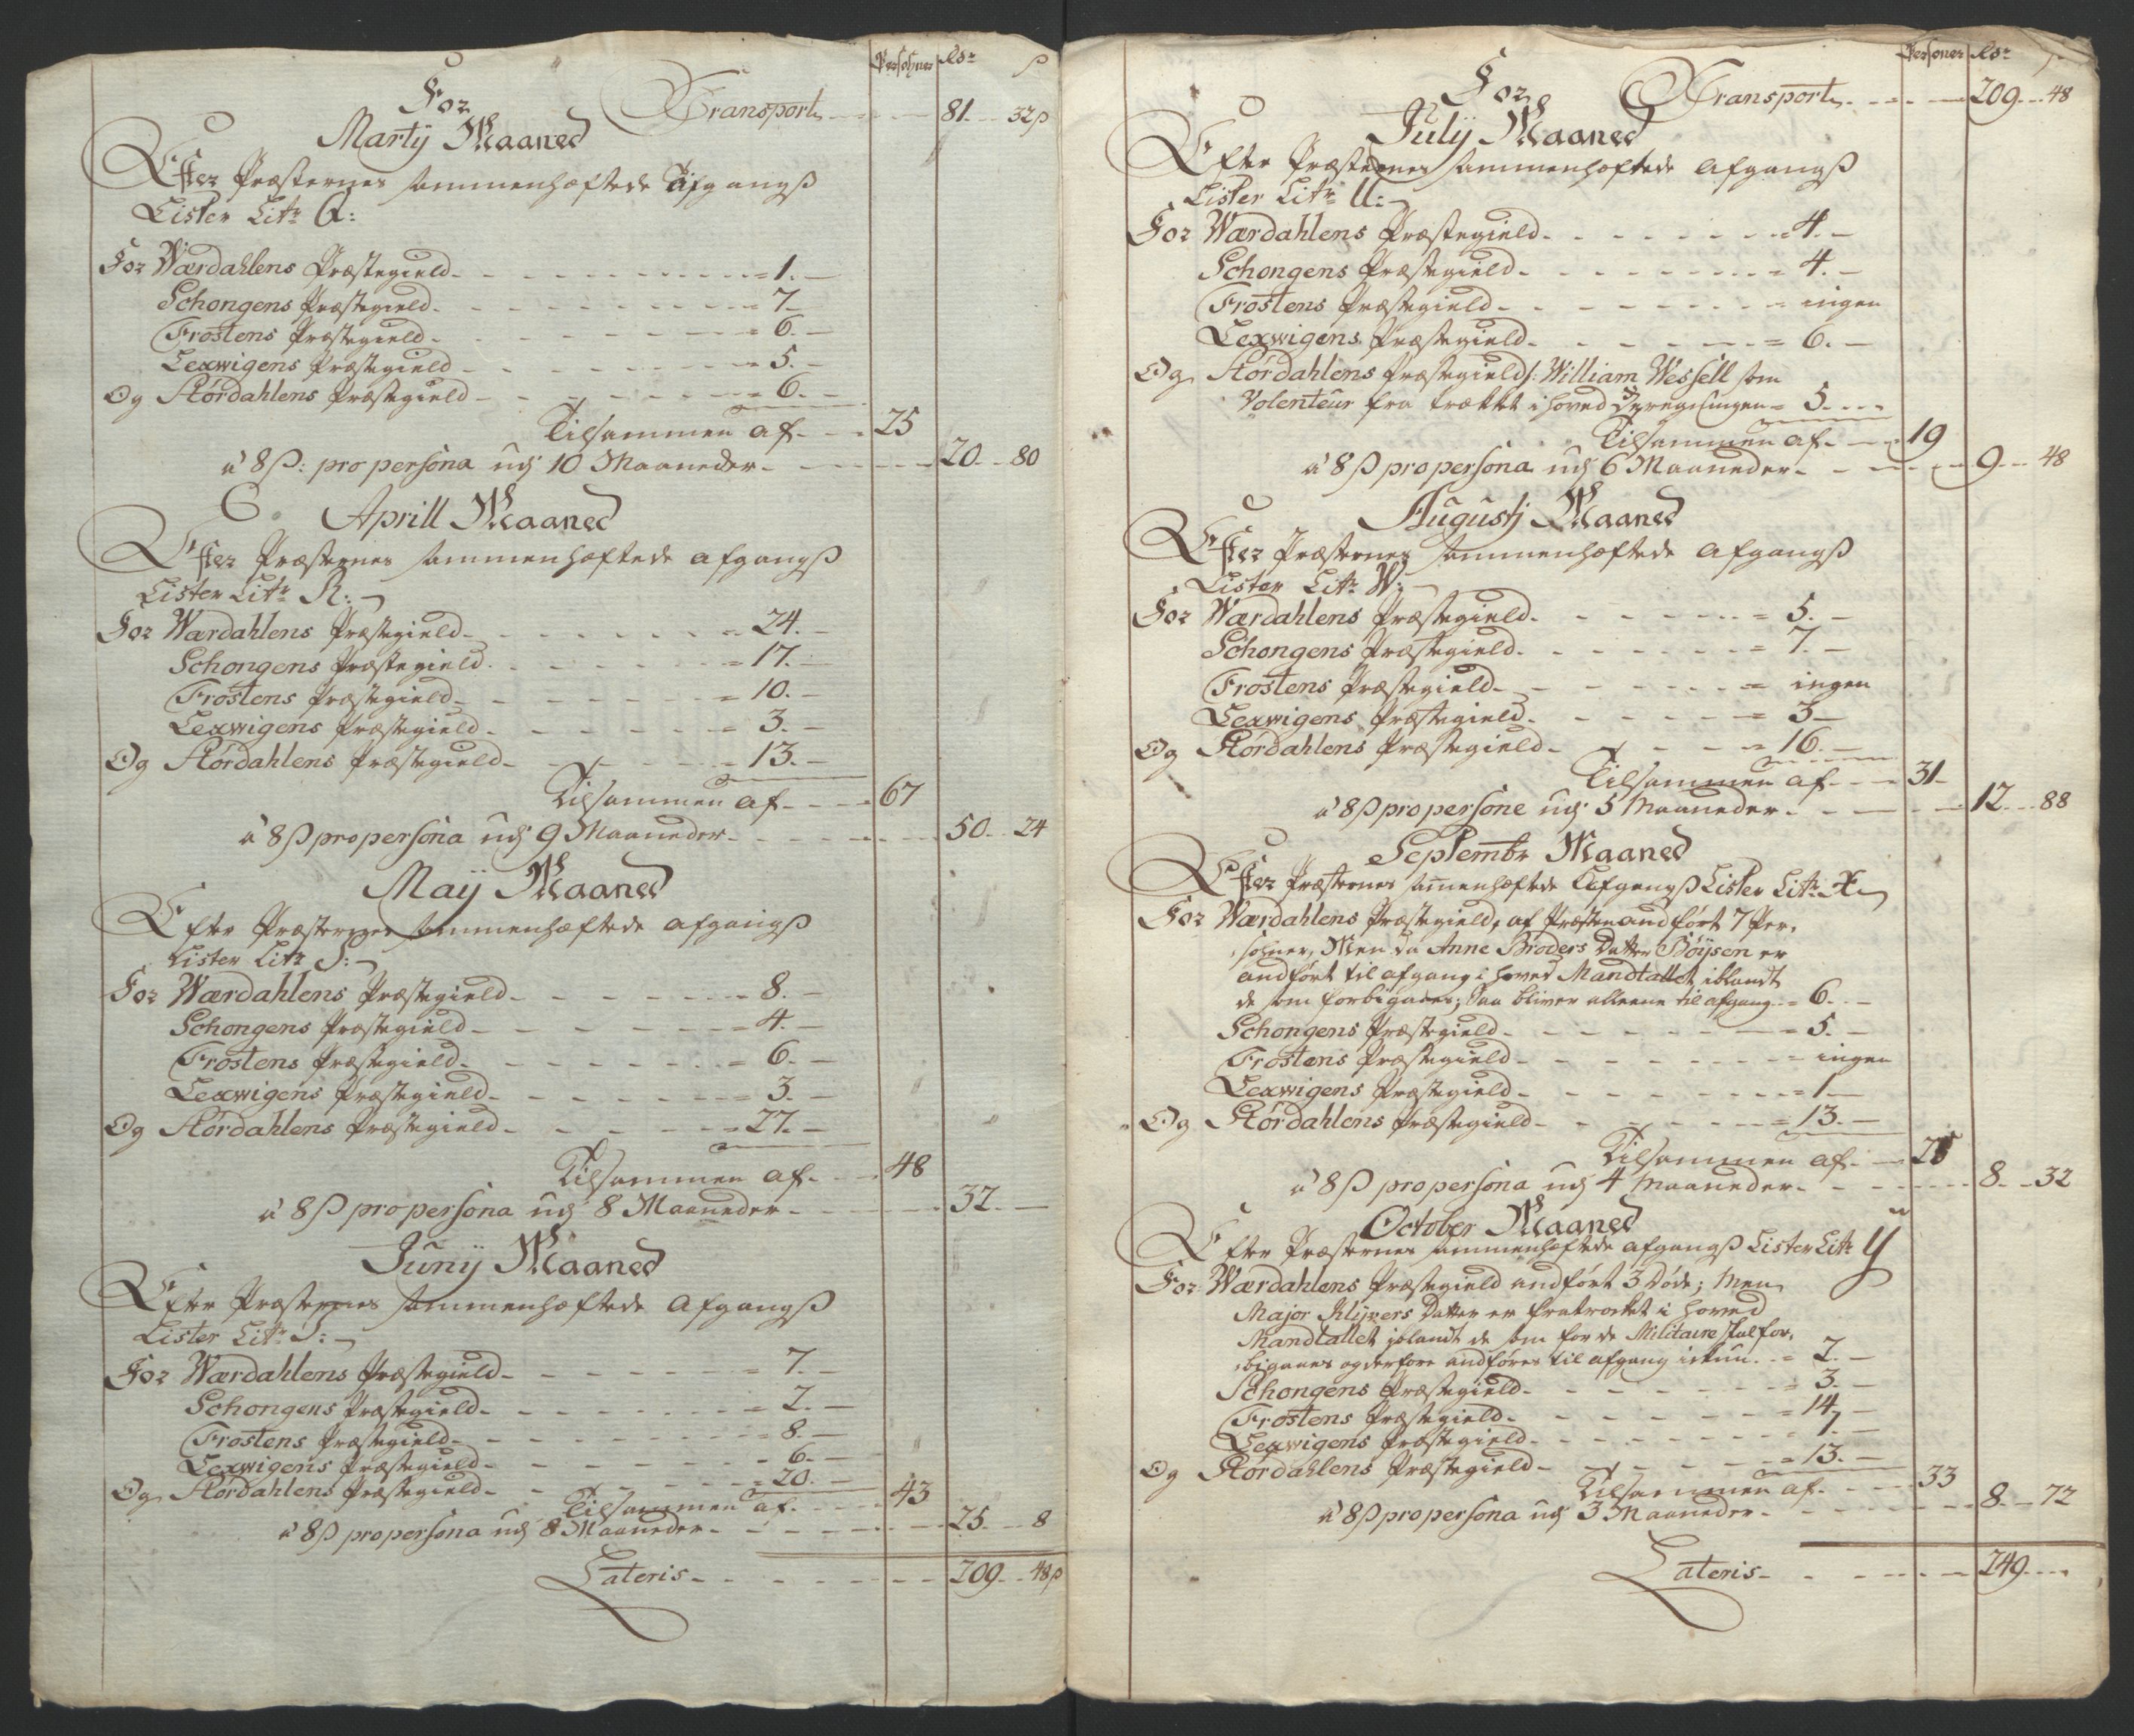 Persohner Rdr ß
For Transport 81 32ß
Martij Maaned
Efter Præsternes sammenhæftede Afgangs
Lister Litr Q:
For Wærdahlens Præstegield 1.
Schongens Præstegield 7
Frostens Præstegield 6.
Lexwigens Præstegield 5.
Og Størdahlens Præstegield 6.
Tilsammen af 25
a 8 ß: pro persona udj 10 Maaneder 20 80
Aprill Maaned
Efter Præsternes sammenhæftede afgangs
Lister Litr R:
For Wærdahlens Præstegield 24.
Schongens Præstegield 17.
Frostens Præstegield 10.
Lexwigens Præstegield 3.
Og Størdahlens Præstegield 13.
Tilsammen af 67
a 8 ß pro persona udj 9 Maaneder 50 24
Maij Maaned
Efter Præsternes sammenhæftede afgangs
Lister Litr S:
For Wærdahlens Præstegield 8.
Schongens Præstegield 4.
Frostens Præstegield 6.
Lexwigens Præstegield 3.
Og Størdahlens Præstegield 27.
Tilsammen af 48
a 8 ß pro persona udj 8 Maaneder 32.
Junij Maaned
Efter Præsternes sammenhæftede Afgangs
Lister Litr
For Wærdahlens Præstegield 7.
Schongens Præstegield 2.
Frostens Præstegield 8.
Lexwigens Præstegield 6.
Og Størdahlens Præstegield 20.
Tilsammen af 43
a 8 ß pro persona udj 8 Maaneder 25 8
Lateris 209 48ß
Persohner Rdr
For Transport 209 48
Julij Maaned
Efter Præsternes sammenhæftede Afgangs
Lister Litr U:
For Wærdahlens Præstegield 4.
Schongens Præstegield 4.
Frostens Præstegield ingen
Lexwigens Præstegield 6.
Og Størdahlens Præstegield /: William Wessell som
Volenteur fra trækket i hoved 5
Tilsammen af 19
a 8 ß pro persona udj 6 Maaneder 9 48
Augustj Maaned
Efter Præsternes sammenhæftede Afgangs
Lister Litr W:
For Wærdahlens Præstegield 5.
Schongens Præstegield 7.
Frostens Præstegield ingen
Lexwigens Præstegield 3
Og Størdahlens Præstegield 16.
Tilsammen af 31
a 8 ß pro persone udj 5 Maaneder 12 88
Septembr Maaned
Efter Præsternes sammenhæftede Afgangs Lister Litr X
For Wærdahlens Præstegield, af Præsten andført 7 Per,
sohner, Men da Anne Broders Datter Bøijsen er
andført til afgang i hoved Mandtallet iblandt
de som forbigaaes; Saa bliver alleene til afgang 6.
Schongens Præstegield 5.
Frostens Præstegield ingen
Lexwigens Præstegield 1
Og Størdahlens Præstegield 13.
Tilsammen af 25
a 8 ß pro persona udj 4 Maaneder 8 32
October Maaned
Efter Præsternes sammenhæftede afgangs Lister Litr Y
For Wærdahlens Præstegield andført 3 døde; Men
Major Klüvers Datter er fratrækt i hoved
Mandtallet jblandt de som for de Militaire skal for,
bigaaes og derfore andføres til afgang ickun 2.
Schongens Præstegield 3.
Frostens Præstegield 14
Lexwigens Præstegield 1.
Og Størdahlens Præstegield 13.
Tilsammen af 33
a 8 ß pro persona udj 3 Maaneder 8 72
Lateris 249